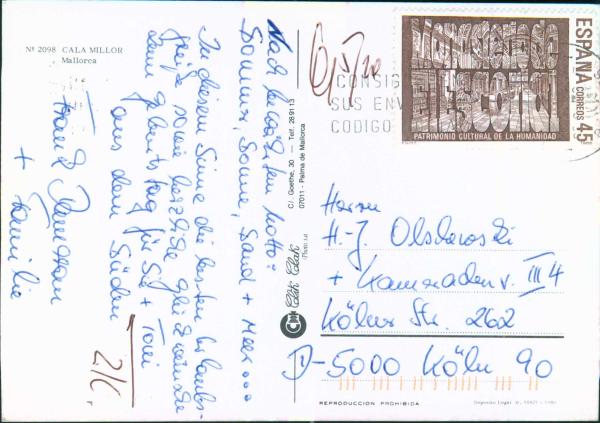 Nº 2098 CALA MILLOR
Mallorca
Nach bewährtem Motto:
Sommer, Sonne, Sand + Meer...
In diesem Sinne die besten Urlaubs-
grüße sowie herzliche Glückwünsche
dem Geburtstag für Sie +
aus dem Süden
Familie
+ Familie
2/6
C/. Goethe, 30 — Telf. 28 91 13
07011 - Palma de Mallorca
Clik Clak
CONSIG
SUS ENV
CODIGO
MONASTERIO
EL ESCORIAL
PATRIMONIO CULTURAL DE LA HUMANIDAD
ESPAÑA
CORREOS
45
Herrn
H.-J.
+ Kameraden v. III 4
Kölner Str. 262
D-5000 Köln 90
REPRODUCCION PROHIBIDA
Deposito Legal